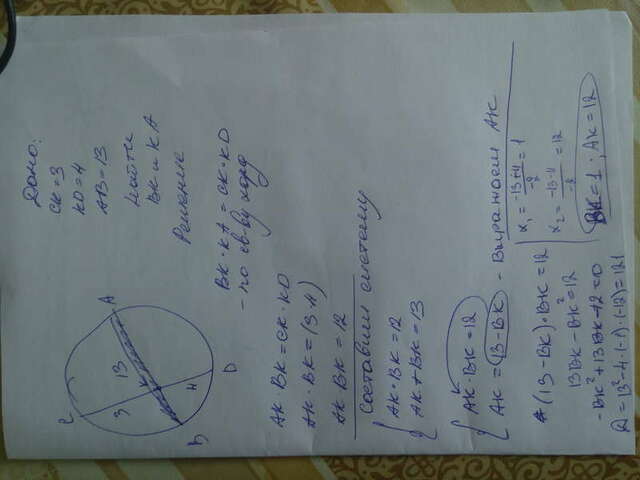 Дано:
CK=3
KD=4
AB=13
Найти
BK и KA
Решение
BK·KA=CK·KD
- по св-ву хорд
C
3
13
A
K
B
4
D
AK·BK=CK·KD
AK·BK=(3·4)
AK BK=12
Составим систему
AK·BK=12
AK+BK=13
AK·BK=12
AK=13-BK - Выражаем AK
(13-BK)·BK=12
13BK-BK²=12
-BK²+13BK-12=0
D=13²-4·(-1)·(-12)=121
x₁=-13+11/-2=1
x₂=-13-11/-2=12
BK=1; AK=12